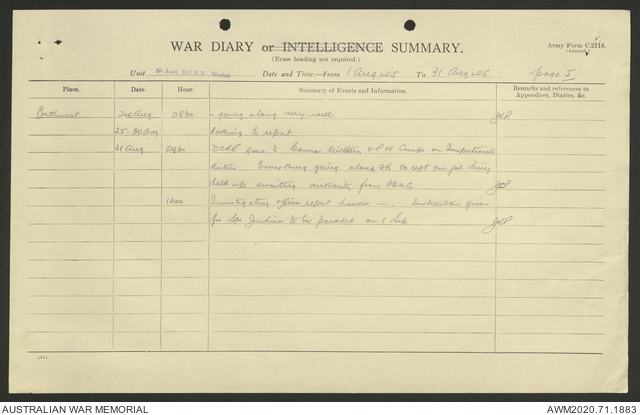 WAR DIARY or INTELLIGENCE SUMMARY.
Army Form C.2118.
(Adapted)
(Erase heading not required.)
Unit 50 Aust. D.C.R.E. (Works) Date and Time.—From 1 Aug 45 To 31 Aug 45 page 5
Place. Date. Hour. Summary of Events and Information. Remarks and references to Appendices, Diaries, &c.
Bathurst 24 Aug 0830 - going along very well
25-30 Aug Nothing to report
31 Aug 0930 DCRE goes to & PW Camps on Inspectional
duties. Everything going along OK except one job being
held up awaiting authority from
1600 Investigating officers report handed in. Instructions given
for Spr Jenkins to be paraded on 1 Sep
AUSTRALIAN WAR MEMORIAL
AWM2020.71.1883